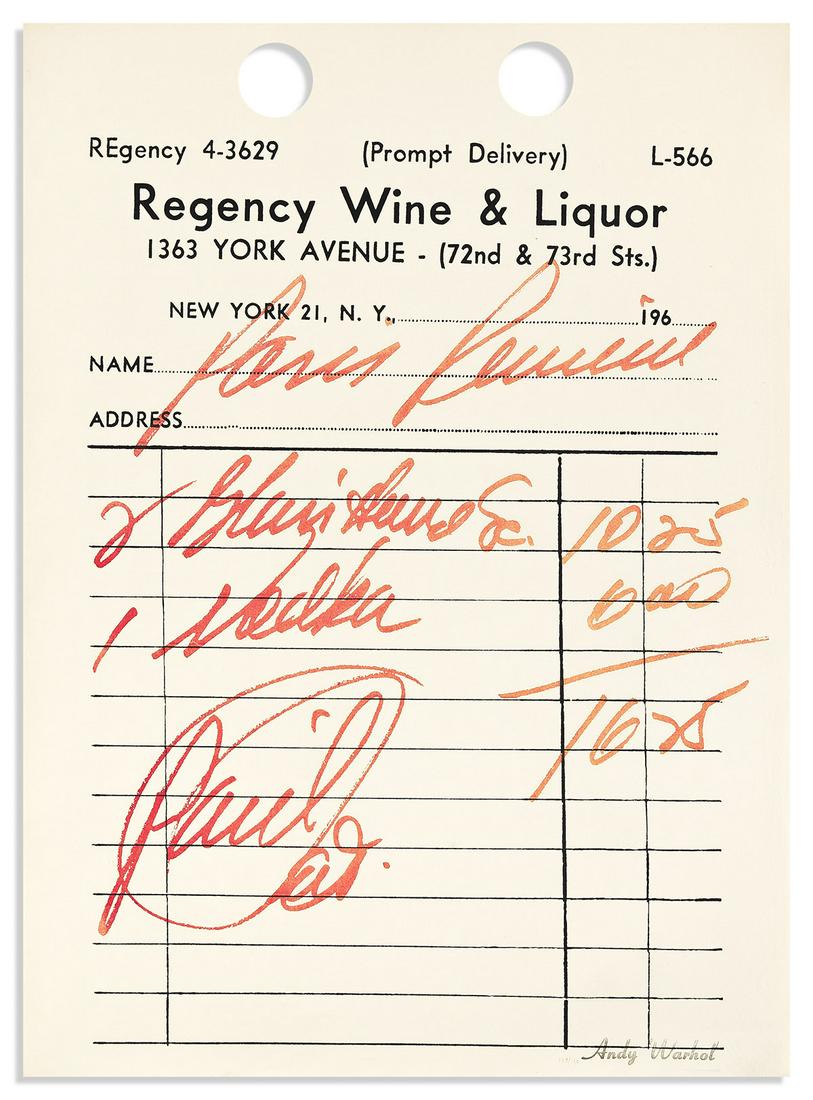 REgency 4-3629 (Prompt Delivery) L-566
Regency Wine & Liquor
1363 YORK AVENUE - (72nd & 73rd Sts.)
NEW YORK 21, N. Y., 196
NAME Paris
ADDRESS
2 Sc. 10 25
1 Vodka 6 00
16 25
Paid
Andy Warhol